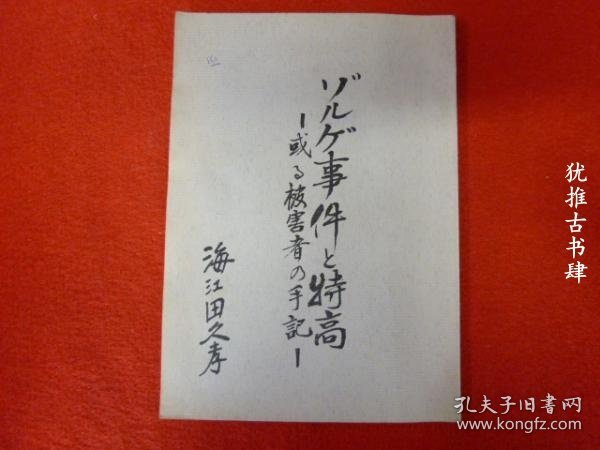 ゾルゲ事件と特高
ー或る被害者の手記ー
海江田久孝
犹推古书肆
孔夫子旧书网
www.kongfz.com